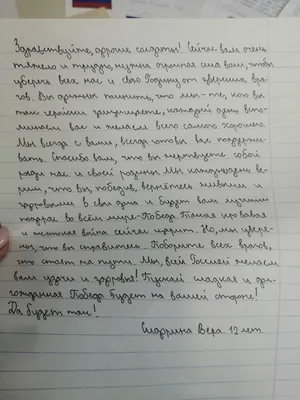 Здравствуйте, дорогие солдаты! Сейчас вам очень
тяжело и трудно, нужна огромная сила вам, чтобы
уберечь всех нас и свою Родину от зверских вра-
гов. Вы должны помнить, что мы - те, кого вы
так геройски защищаете, каждый день вспо-
минаем вас и желаем всего самого хорошего.
Мы всегда с вами, всегда готовы вас поддержи-
вать. Спасибо вам, что вы жертвуете собой
ради нас и своей родины. Мы каждодневно ве-
рим, что вы, победив, вернётесь живыми и
здоровыми в свои дома и будет вам лучший
подарок во всём мире - Победа. Такая кровавая
и жестокая война сейчас идёт. Но, мы увере-
ны, что вы справитесь. Поборите всех врагов,
что стоят на пути. Мы, всей Россией желаем
вам удачи и здоровья! Пускай сладкая и дол-
гожданная Победа будет на вашей стороне!
Да будет так!
Вера. 12 лет.